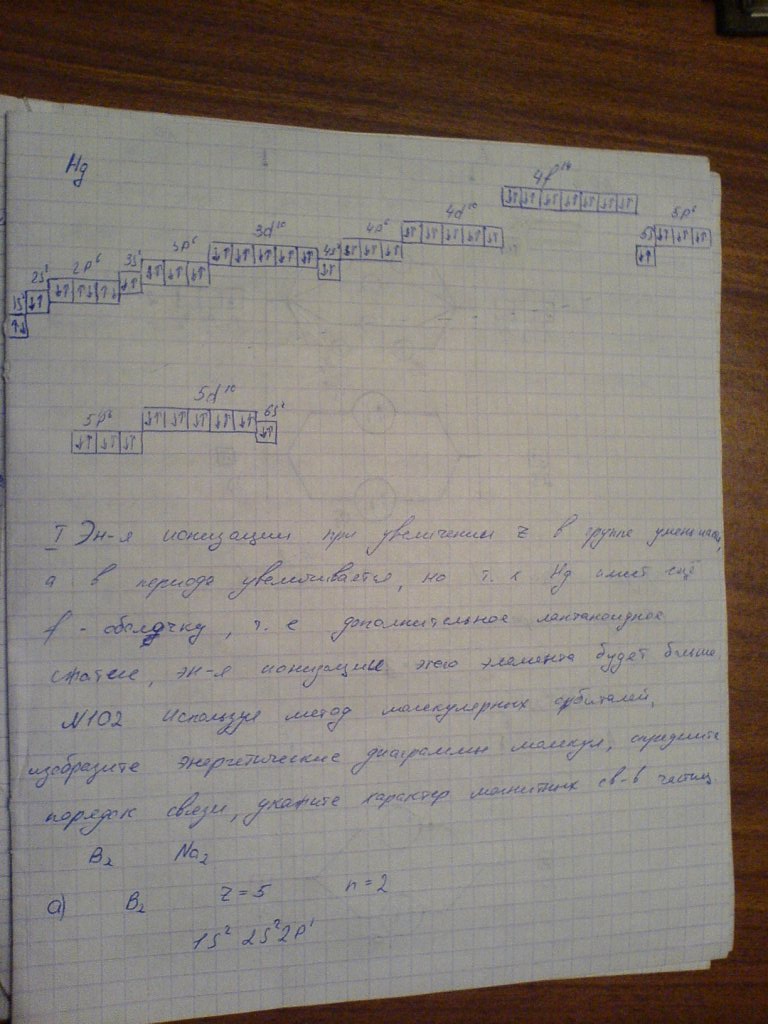 Hg
1s² 2s² 2p⁶ 3s² 3p⁶ 3d¹⁰ 4s² 4p⁶ 4d¹⁰ 4f¹⁴ 5s² 5p⁶
5p⁶ 5d¹⁰ 6s²
I Эн-я ионизации при увеличении z в группе уменьшается,
а в периоде увеличивается, но т. к Hg имеет ещё
f - оболочку, т. е дополнительное лантаноидное
сжатие, эн-я ионизации этого элемента будет больше
N102 Используя метод молекулярных орбиталей,
изобразите энергетические диаграммы молекул, определите
порядок связи, укажите характер магнитных св-в частиц
B₂ Na₂
а) B₂ z=5 n=2
1s² 2s² 2p¹